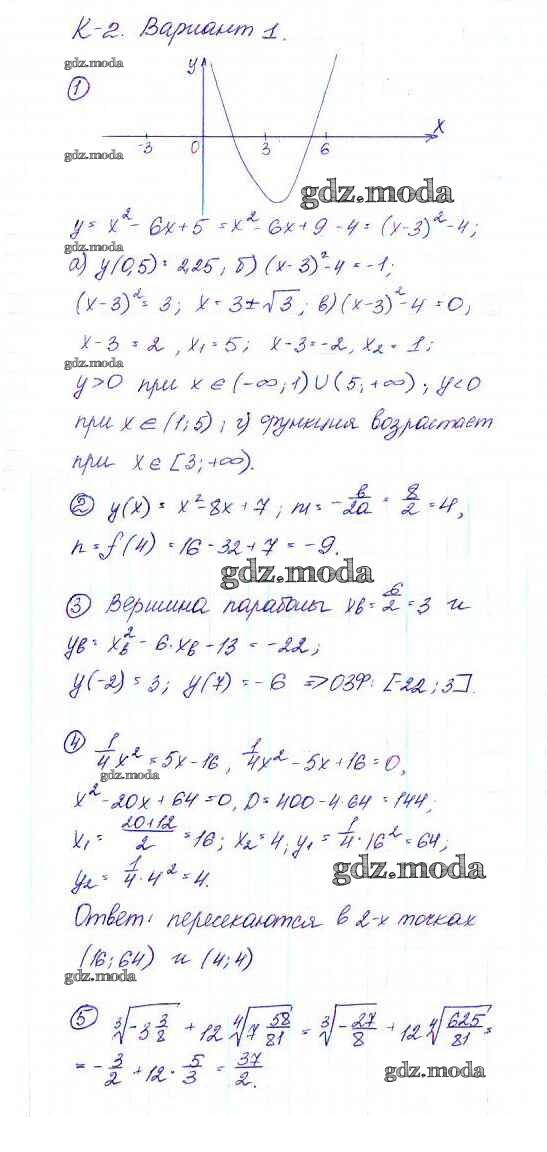 К-2. Вариант 1.
gdz.moda
①
y
x
-3 0 3 6
gdz.moda
gdz.moda
y = x² - 6x + 5 = x² - 6x + 9 - 4 = (x-3)² - 4;
а) y(0,5) = 2,25, б) (x-3)² - 4 = -1;
(x-3)² = 3; x = 3 ± √3; в) (x-3)² - 4 = 0,
x - 3 = 2, x₁ = 5; x - 3 = -2, x₂ = 1;
gdz.moda
y > 0 при x ∈ (-∞; 1) ∪ (5; +∞), y < 0
при x ∈ (1; 5); г) функция возрастает
при x ∈ [3; +∞).
② y(x) = x² - 8x + 7; m = -b/2a = 8/2 = 4,
n = f(4) = 16 - 32 + 7 = -9.
gdz.moda
③ Вершина параболы xв = 6/2 = 3 и
yв = xв² - 6·xв - 13 = -22;
y(-2) = 3; y(7) = -6 => ОЗФ: [-22; 3].
④ 1/4 x² = 5x - 16, 1/4 x² - 5x + 16 = 0,
gdz.moda
x² - 20x + 64 = 0, D = 400 - 4·64 = 144;
x₁ = (20+12)/2 = 16; x₂ = 4; y₁ = 1/4 · 16² = 64;
y₂ = 1/4 · 4² = 4.
gdz.moda
Ответ: пересекаются в 2-х точках
(16; 64) и (4; 4)
gdz.moda
⑤ ∛(-3 3/8) + 12 ∜(7 58/81) = ∛(-27/8) + 12 ∜(625/81) =
= -3/2 + 12 · 5/3 = 37/2.
gdz.moda